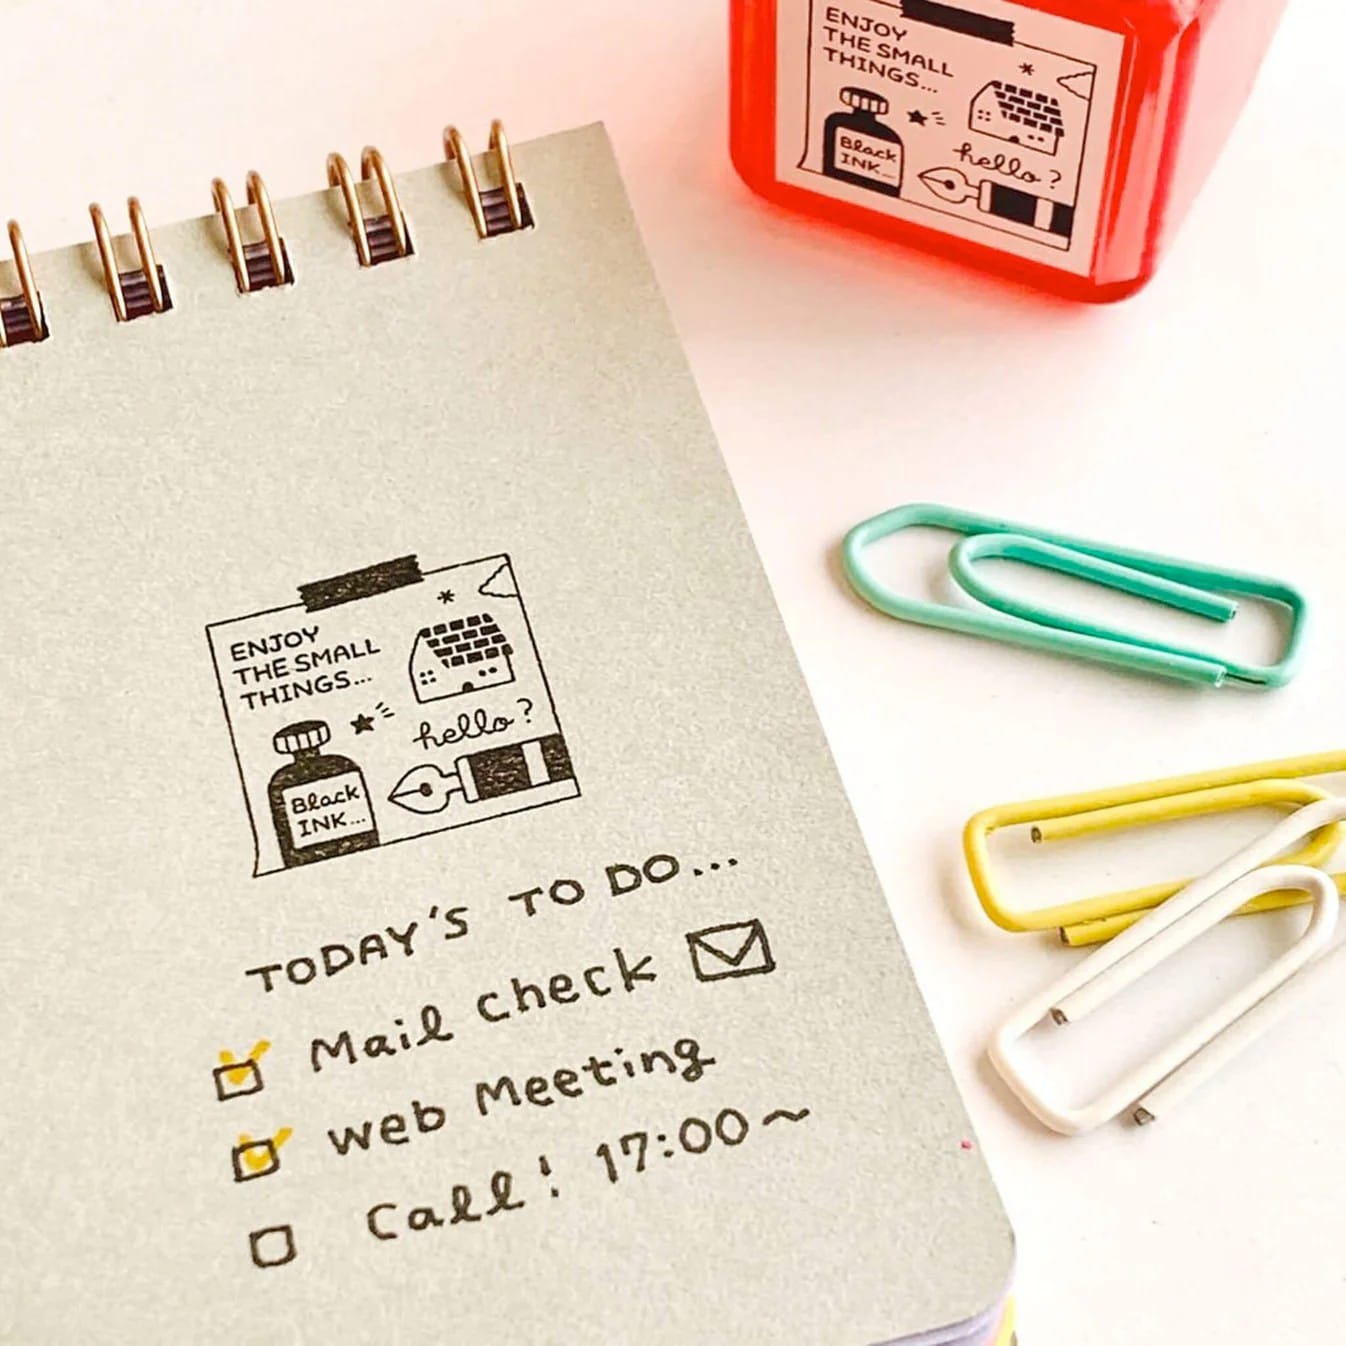 ENJOY
THE SMALL
THINGS...
hello?
Black
INK...
ENJOY
THE SMALL
THINGS...
hello?
Black
INK...
TODAY'S TO DO...
Mail check
web Meeting
Call! 17:00~